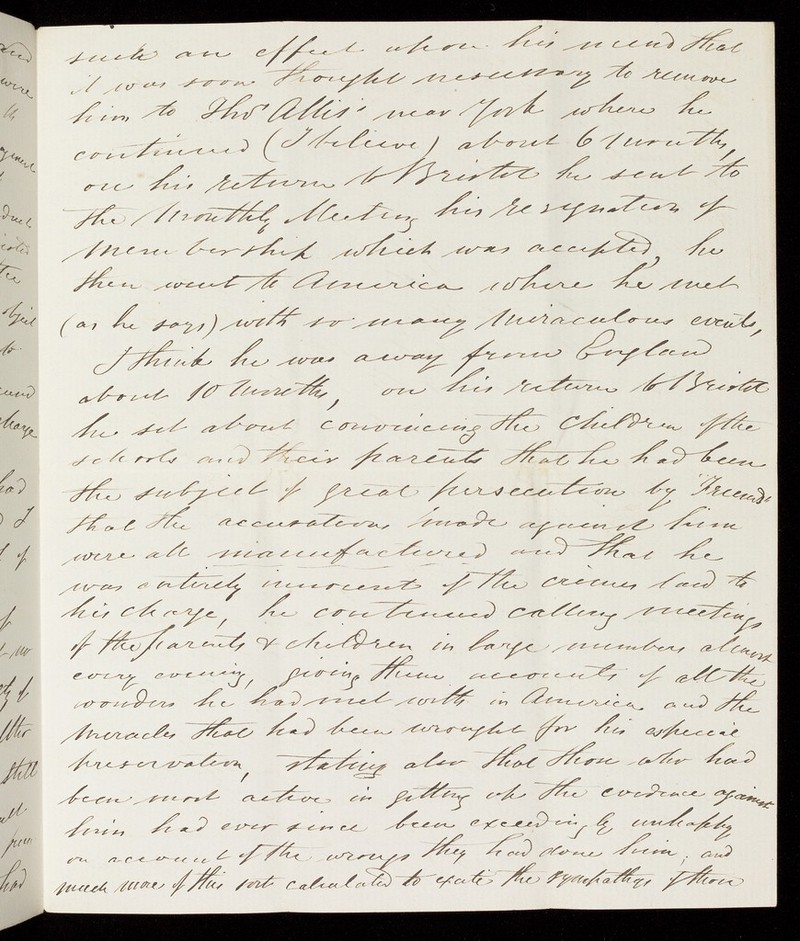 such an effect upon his mind that
it was soon thought necessary to remove
him to Thos Allis's near York where he
continued (I believe) about 6 months,
on his return to Bristol he sent to
the Monthly Meeting his resignation of
membership which was accepted, he
then went to America where he met
(as he says) with so many miraculous events,
I think he was away from England
about 10 months, on his return to Bristol
he set about convincing the children of the
schools and their parents that he had been
the subject of great persecution by "Friends"
that the accusations made against him
were all manufactured and that he
was entirely innocent of the crimes laid to
his charge, he continued calling meetings
of the parents & children in large numbers almost
every evening, giving them accounts of all the
wonders he had met with in America and the
miracles that had been wrought for his especial
preservation, stating also that those who had
been most active in getting up the evidence against
him had ever since been exceedingly unhappy
on account of the wrongs they had done him; and
much more of this sort calculated to excite the sympathys of those